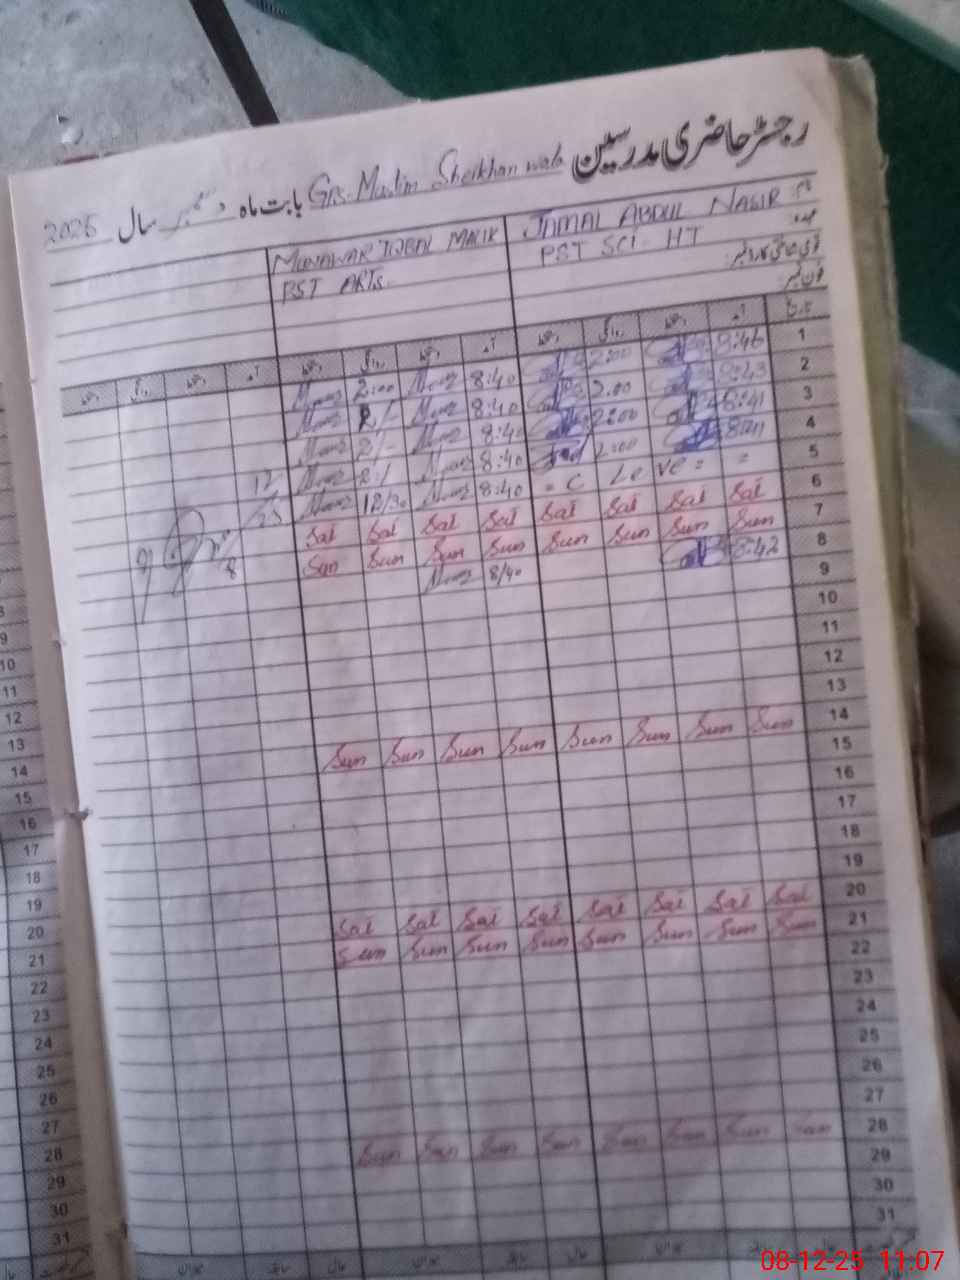 رجسٹر حاضری مدرسین Gps. Muslim Sheikhan wala بابت ماہ دسمبر سال 2025
نام JAMAL ABDUL NASIR MUNAWAR IQBAL MALIK
عہدہ PST SCI. HT PST ARTs.
قومی شناختی کارڈ نمبر
فون نمبر
تاریخ آمد دستخط روانگی دستخط آمد دستخط روانگی دستخط آمد دستخط روانگی دستخط
1 8:46 2:00 8:40 2:00
2 8:43 2.00 8:40 2/-
3 8:41 2:00 8:40 2/-
4 2:00 8:40 2/
5 = C Le ve = = 8:40 12/30
6 Sat Sat Sat Sat Sat Sat Sat Sat
7 Sun Sun Sun Sun Sun Sun Sun Sun
8 8:42 8/40
9
10
11
12
13
14 Sun Sun Sun Sun Sun Sun Sun Sun
15
16
17
18
19
20 Sat Sat Sat Sat Sat Sat Sat Sat
21 Sun Sun Sun Sun Sun Sun Sun Sun
22
23
24
25
26
27
28 Sun Sun Sun Sun Sun Sun Sun Sun
29
30
31
9
10
11
12
13
14
15
16
17
18
19
20
21
22
23
24
25
26
27
28
29
30
31
08-12-25 11:07